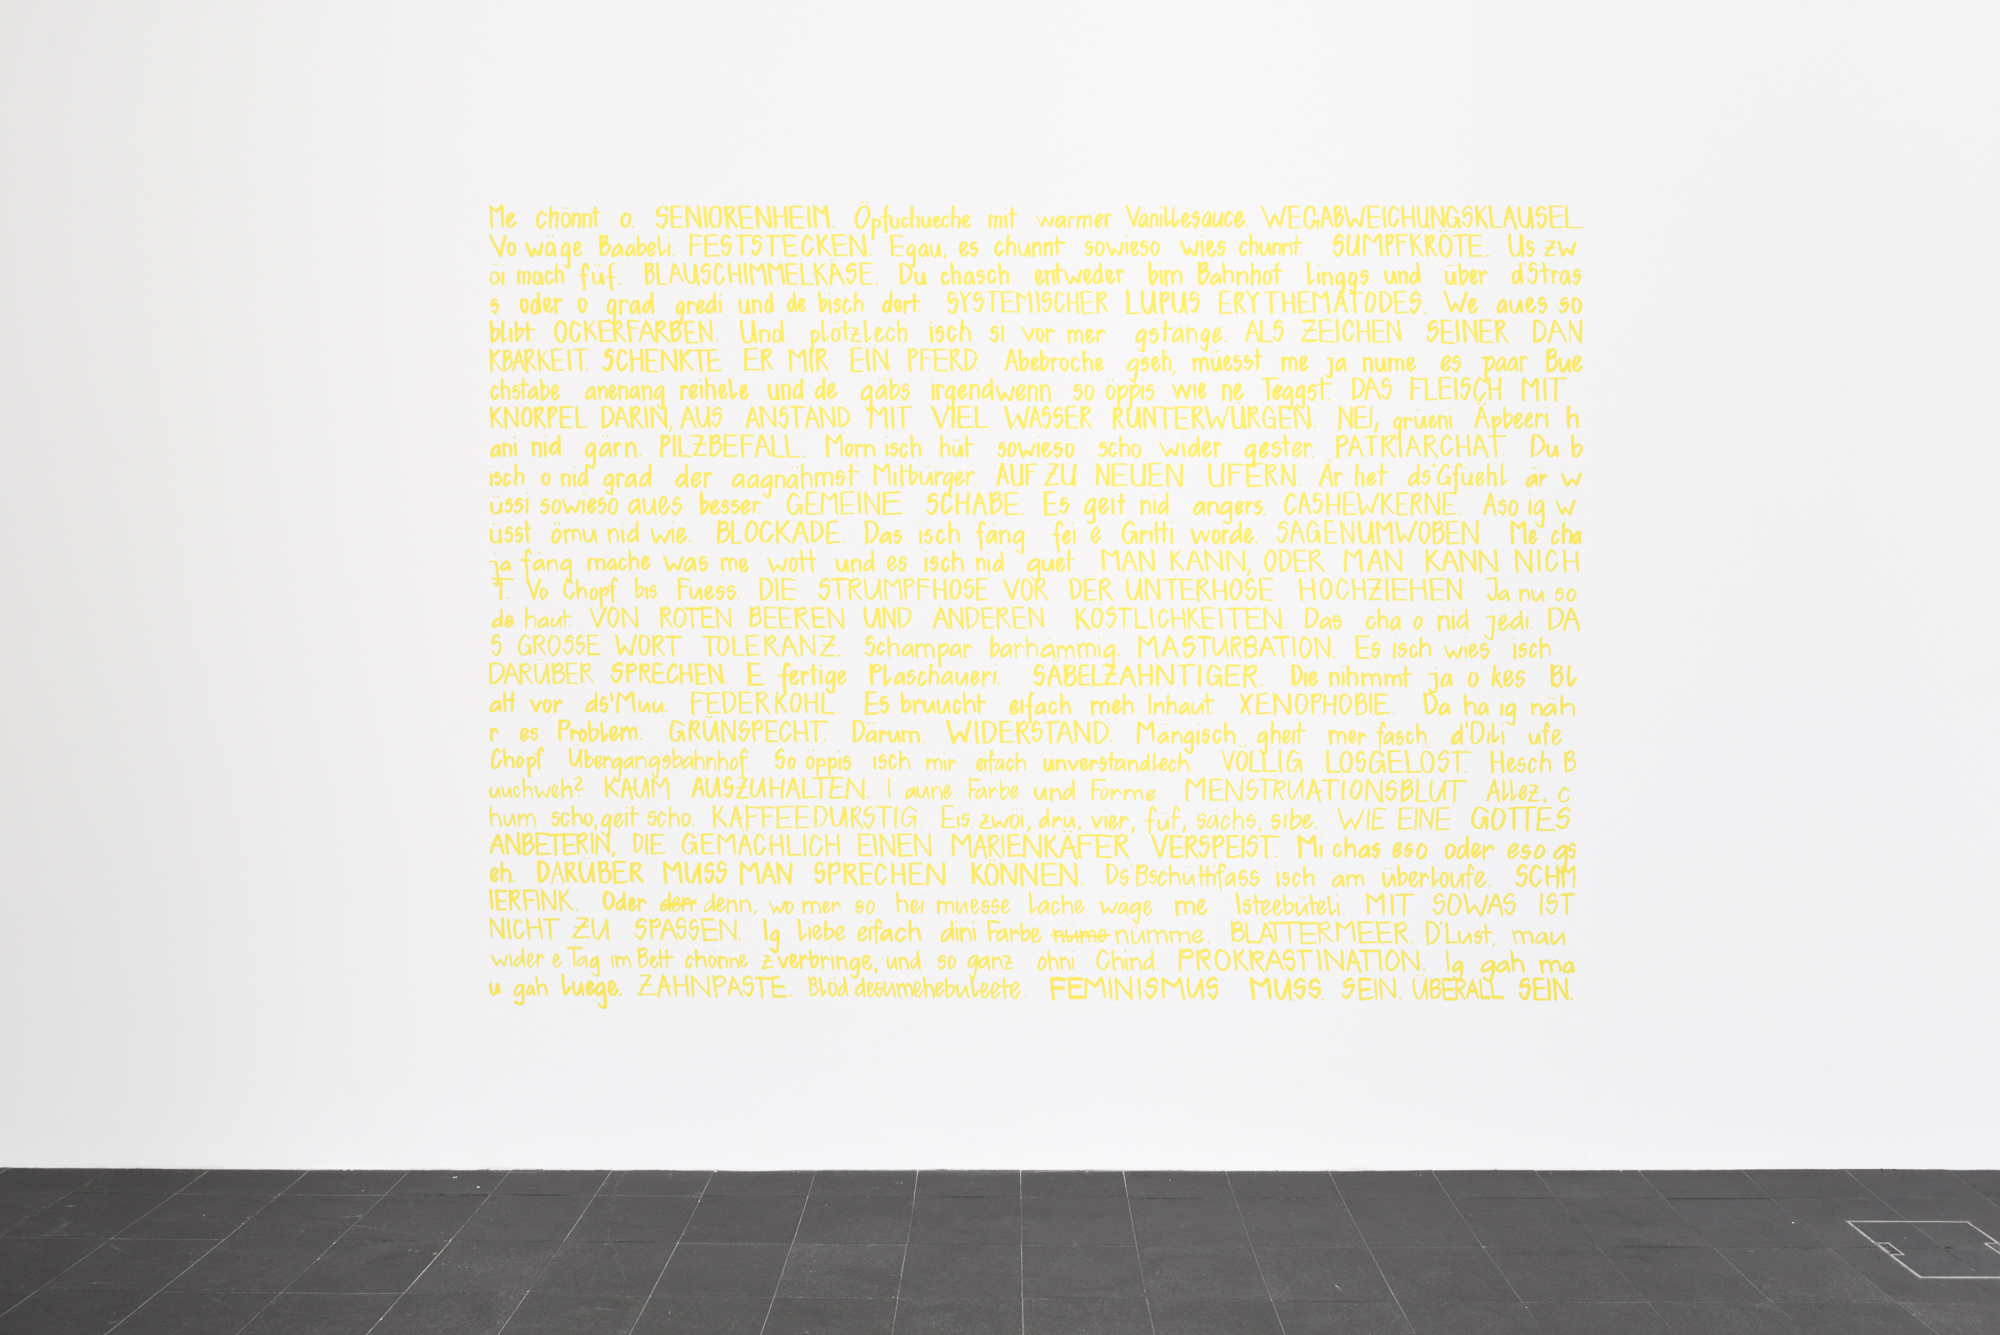 Me chönnt o. SENIORENHEIM. Öpfuchueche mit warmer Vanillesauce. WEGABWEICHUNGSKLAUSEL.
Vo wäge Baabeli. FESTSTECKEN. Egau, es chunnt sowieso wies chunnt. SUMPFKRÖTE. Us zw
öi mach füf. BLAUSCHIMMELKÄSE. Du chasch entweder bim Bahnhof linggs und über d'Stras
s oder o grad gredi und de bisch dert. SYSTEMISCHER LUPUS ERYTHEMATODES. We aues so
blibt. OCKERFARBEN. Und plötzlech isch si vor mer gstange. ALS ZEICHEN SEINER DAN
KBARKEIT SCHENKTE ER MIR EIN PFERD. Abebroche gseh, müesst me ja nume es paar Bue
chstabe anenang reihele und de gäbs irgendwenn so öppis wie ne Teggst. DAS FLEISCH MIT
KNORPEL DARIN, AUS ANSTAND MIT VIEL WASSER RUNTERWÜRGEN. NEI, grüeni Äpbeeri h
ani nid gärn. PILZBEFALL. Morn isch hüt sowieso scho wider gester. PATRIARCHAT. Du b
isch o nid grad der aagnähmst Mitbürger. AUF ZU NEUEN UFERN. Är het ds'Gfuehl är w
üssi sowieso aues besser. GEMEINE SCHABE. Es geit nid angers. CASHEWKERNE. Aso ig w
üsst ömu nid wie. BLOCKADE. Das isch fäng fei e Gritti worde. SAGENUMWOBEN. Me cha
ja fäng mache was me wott und es isch nid guet. MAN KANN, ODER MAN KANN NICH
T. Vo Chopf bis Fuess. DIE STRUMPFHOSE VOR DER UNTERHOSE HOCHZIEHEN. Ja nu so
de haut. VON ROTEN BEEREN UND ANDEREN KÖSTLICHKEITEN. Das cha o nid jedi. DA
S GROSSE WORT TOLERANZ. Schampar barhämmig. MASTURBATION. Es isch wies isch.
DARÜBER SPRECHEN. E fertige Plaschaueri. SÄBELZAHNTIGER. Die nihmmt ja o kes Bl
att vor ds'Muu. FEDERKOHL. Es bruucht eifach meh Inhaut. XENOPHOBIE. Da ha ig näh
r es Problem. GRÜNSPECHT. Därum. WIDERSTAND. Mängisch gheit mer fasch d'Dili ufe
Chopf. Übergangsbahnhof. So öppis isch mir eifach unverständlech. VÖLLIG LOSGELÖST. Hesch B
uuchweh? KAUM AUSZUHALTEN. I aune Farbe und Forme. MENSTRUATIONSBLUT. Allez, c
hum scho, geit scho. KAFFEEDURSTIG. Eis, zwöi, drü, vier, füf, sächs, sibe. WIE EINE GOTTES
ANBETERIN, DIE GEMÄCHLICH EINEN MARIENKÄFER VERSPEIST. Mi chas eso oder eso gs
eh. DARÜBER MUSS MAN SPRECHEN KÖNNEN. Ds'Bschüttifass isch am überloufe. SCHM
IERFINK. Oder denn, wo mer so hei müesse lache wäge me Isteebüteli. MIT SOWAS IST
NICHT ZU SPASSEN. Ig liebe eifach dini Farbe nume nümme. BLÄTTERMEER. D'Lust, mau
wider e Tag im Bett chönne z verbringe, und so ganz ohni Chind. PROKRASTINATION. Ig gah ma
u gah luege. ZAHNPASTE. FEMINISMUS MUSS. SEIN. ÜBERALL SEIN.